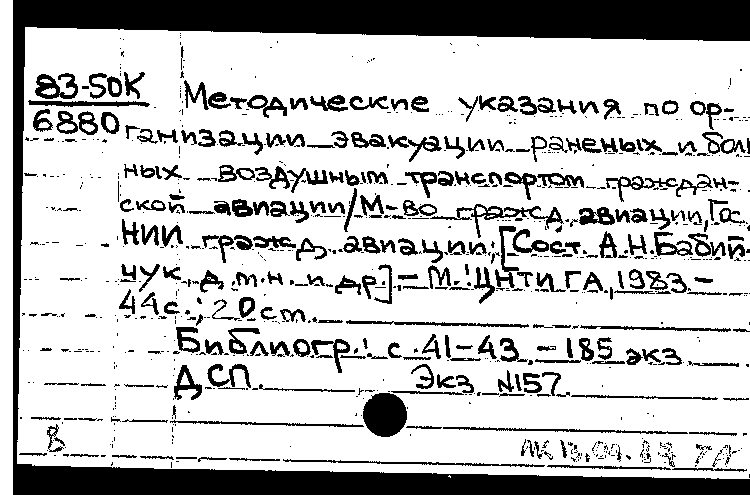 83-50К Методические указания по ор-
6880 ганизации эвакуации раненых и боль
ных воздушным транспортом граждан-
ской авиации/М-во гражд. авиации, Гос.
НИИ гражд. авиации; [Сост. А.Н.Бабий-
чук, д.м.н. и др.].- М.: ЦНТИ ГА, 1983.-
44с.; 20 cm.
Библиогр.: с.41-43. - 185 экз.
ДСП. Экз. №157.
8